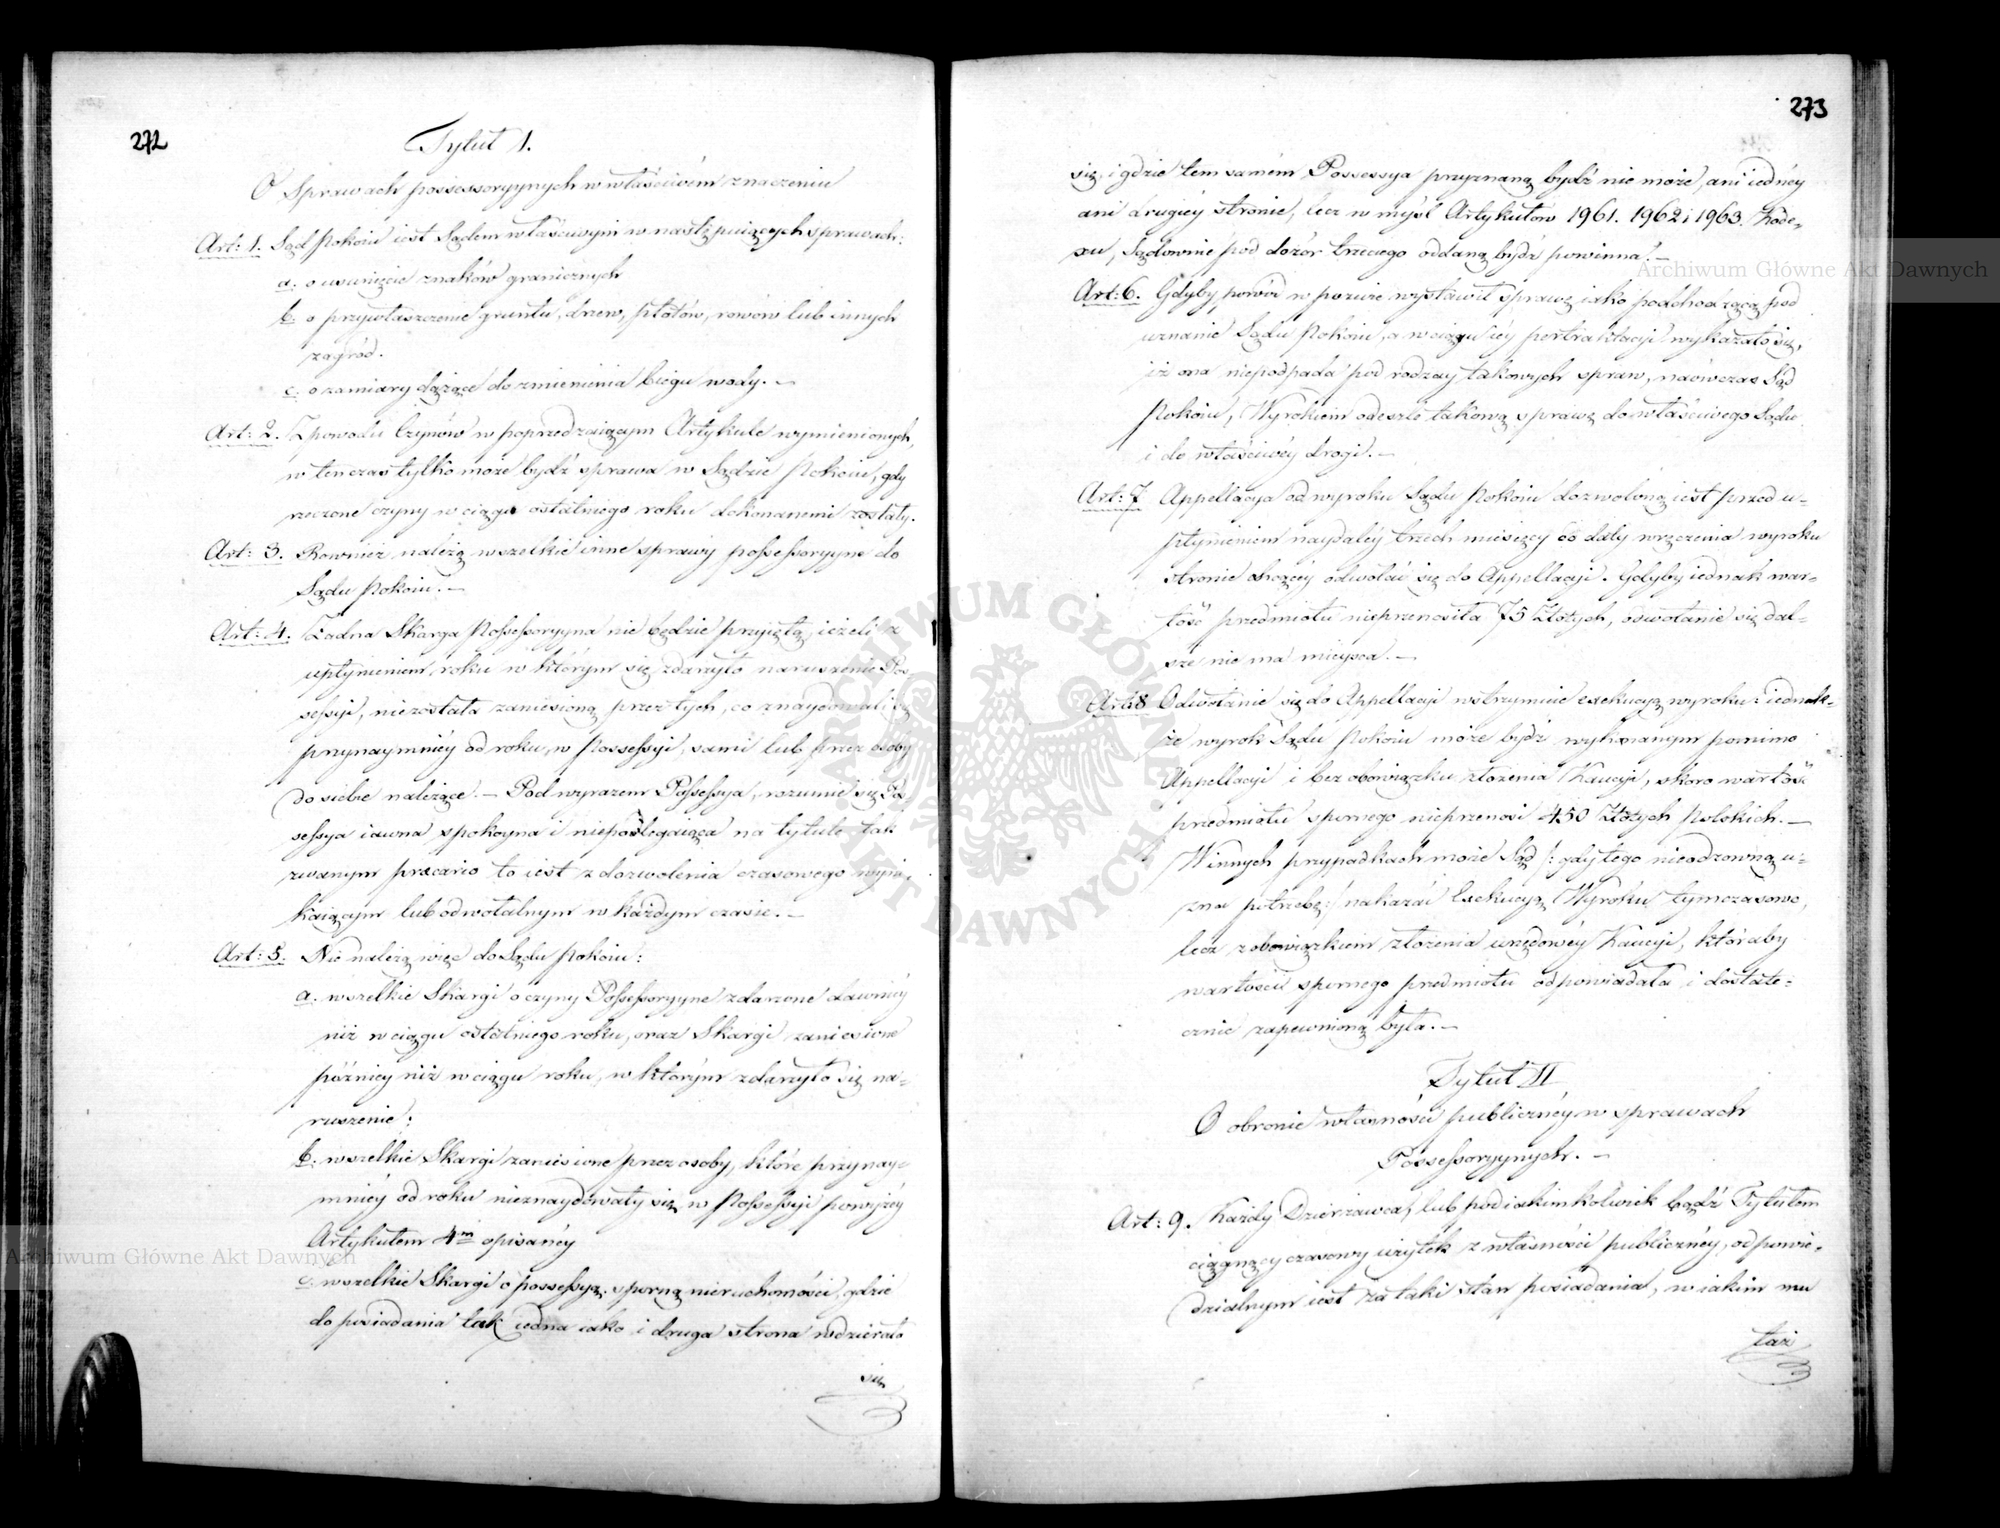 272
Tytuł 1.
O Sprawach possessoryynych w właściwém znaczeniu
Art: 1. Sąd Pokoiu iest Sądem właściwym w następuiących sprawach:
a. o usunięcie znaków granicznych
b. o przywłaszczenie gruntu, drzew, płotów, rowów lub innych
zagród.
c. o zamiary dążące do zmienienia biegu wody. –
Art: 2. Z powodu Czynów w poprzedzaiącym Artykule wymienionych,
w tenczas tylko może bydź sprawa w Sądzie Pokoiu, gdy
rzeczone czyny w ciągu ostatniego roku dokonanemi zostały.
Art: 3. Rownież należą wszelkie inne sprawy possessoryyne do
Sądu Pokoiu. –
Art: 4. Żadna Skarga Possessoryyna nie będzie przyiętą, ieżeli z
upłynieniem roku w którym się zdarzyło naruszenie Pos-
sessyi, niezostała zaniesioną przez tych, co znaydowali się
przynaymniéy od roku, w Possessyi, sami lub przez osoby
do siebie należące. – Pod wyrazem Possessya, rozumie się Pos-
sessya iawna spokoyna i niepolegaiąca na tytule tak
zwanym precario to iest z dozwolenia czasowego wyni-
kaiącym lub odwołalnym w każdym czasie. –
Art: 5. Nie należą więc do Sądu Pokoiu:
a. wszelkie Skargi o czyny Possessoryyne zdarzone dawniéy
niż w ciągu ostatniego roku, oraz Skargi zaniesione
późniey niż w ciągu roku, w którym zdarzyło się na-
ruszenie:
b. wszelkie Skargi zaniesione przez osoby, które przynay-
mniéy od roku nieznaydowały się w Possessyi powyżéy
Artykułem 4m opisanéy
c. wszelkie Skargi o possessyą sporną nieruchomości, gdzie
do posiadania tak iedna iako i druga strona wdzierała
się
273
się, i gdzie tem samém Possessya przyznaną bydź nie może, ani iednéy
ani drugiéy stronie, lecz w myśl Artykułów 1961. 1962 i 1963. Kode-
xu, Sądownie pod dozór trzeciego oddaną bydź powinna. –
Art: 6. Gdyby powód w pozwie wystawił sprawę iako podchodzącą pod
uznanie Sądu Pokoiu, a w ciągu iéy pertraktacyi wykazało się,
iż ona niepodpada pod rodzay takowych spraw, naówczas Sąd
Pokoiu, Wyrokiem odeszle takową sprawę do właściwego Sądu
i do właściwéy drogi. –
Art: 7 Appellacya od wyroku Sądu Pokoiu dozwoloną iest przed u-
płynieniem naydaléy trzech miesięcy od daty wręczenia wyroku
stronie chcącéy odwołać się do Appellacyi. Gdyby iednak war-
tość przedmiotu nieprzenosiła 75 Złotych, odwołanie się dal-
sze nie ma mieysca. –
Art: 8 Odwołanie się do Appellacyi wstrzymuie exekucyą wyroku: iednak-
że wyrok Sądu Pokoiu może bydź wykonanym pomimo
Appellacyi i bez obowiązku złożenia Kaucyi, skoro wartość
przedmiotu spornego nieprzenosi 450 Złotych Polskich. –
W innych przypadkach może Sąd /: gdy tego nieodzowną u-
zna potrzebę :/ nakazać Exekucyą Wyroku tymczasowo,
lecz z obowiązkiem złożenia urzędowéy Kaucyi, któraby
wartości spornego przedmiotu odpowiadała i dostate-
cznie zapewnioną była. –
Tytuł II
O obronie własności publicznéy w sprawach
Possessoryynych. –
Art: 9. Każdy Dzierżawca, lub pod iakimkolwiek bądź Tytułem
ciągnący czasowy użytek z własności publicznéy, odpowie-
dzialnym iest za taki stan posiadania, w iakim mu
taż
Archiwum Główne Akt Dawnych
Archiwum Główne Akt Dawnych
ARCHIWUM GŁÓWNE AKT DAWNYCH